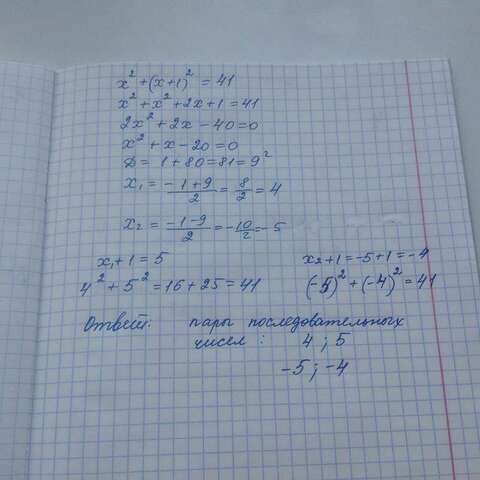 x² + (x+1)² = 41
x² + x² + 2x + 1 = 41
2x² + 2x - 40 = 0
x² + x - 20 = 0
D = 1 + 80 = 81 = 9²
x₁ = (-1+9)/2 = 8/2 = 4
x₂ = (-1-9)/2 = -10/2 = -5
x₁ + 1 = 5 x₂ + 1 = -5 + 1 = -4
4² + 5² = 16 + 25 = 41 (-5)² + (-4)² = 41
Ответ: пары последовательных
чисел: 4; 5
-5; -4